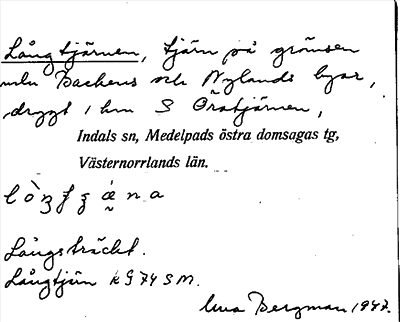 Långtjärnen, tjärn på gränsen
mln Backens och Nylands byar,
drygt 1 km S Öratjärnen,
Indals sn, Medelpads östra domsagas tg,
Västernorrlands län.
Långsträckt.
Långtjärn k G 74 S M.
Bergman 1947.